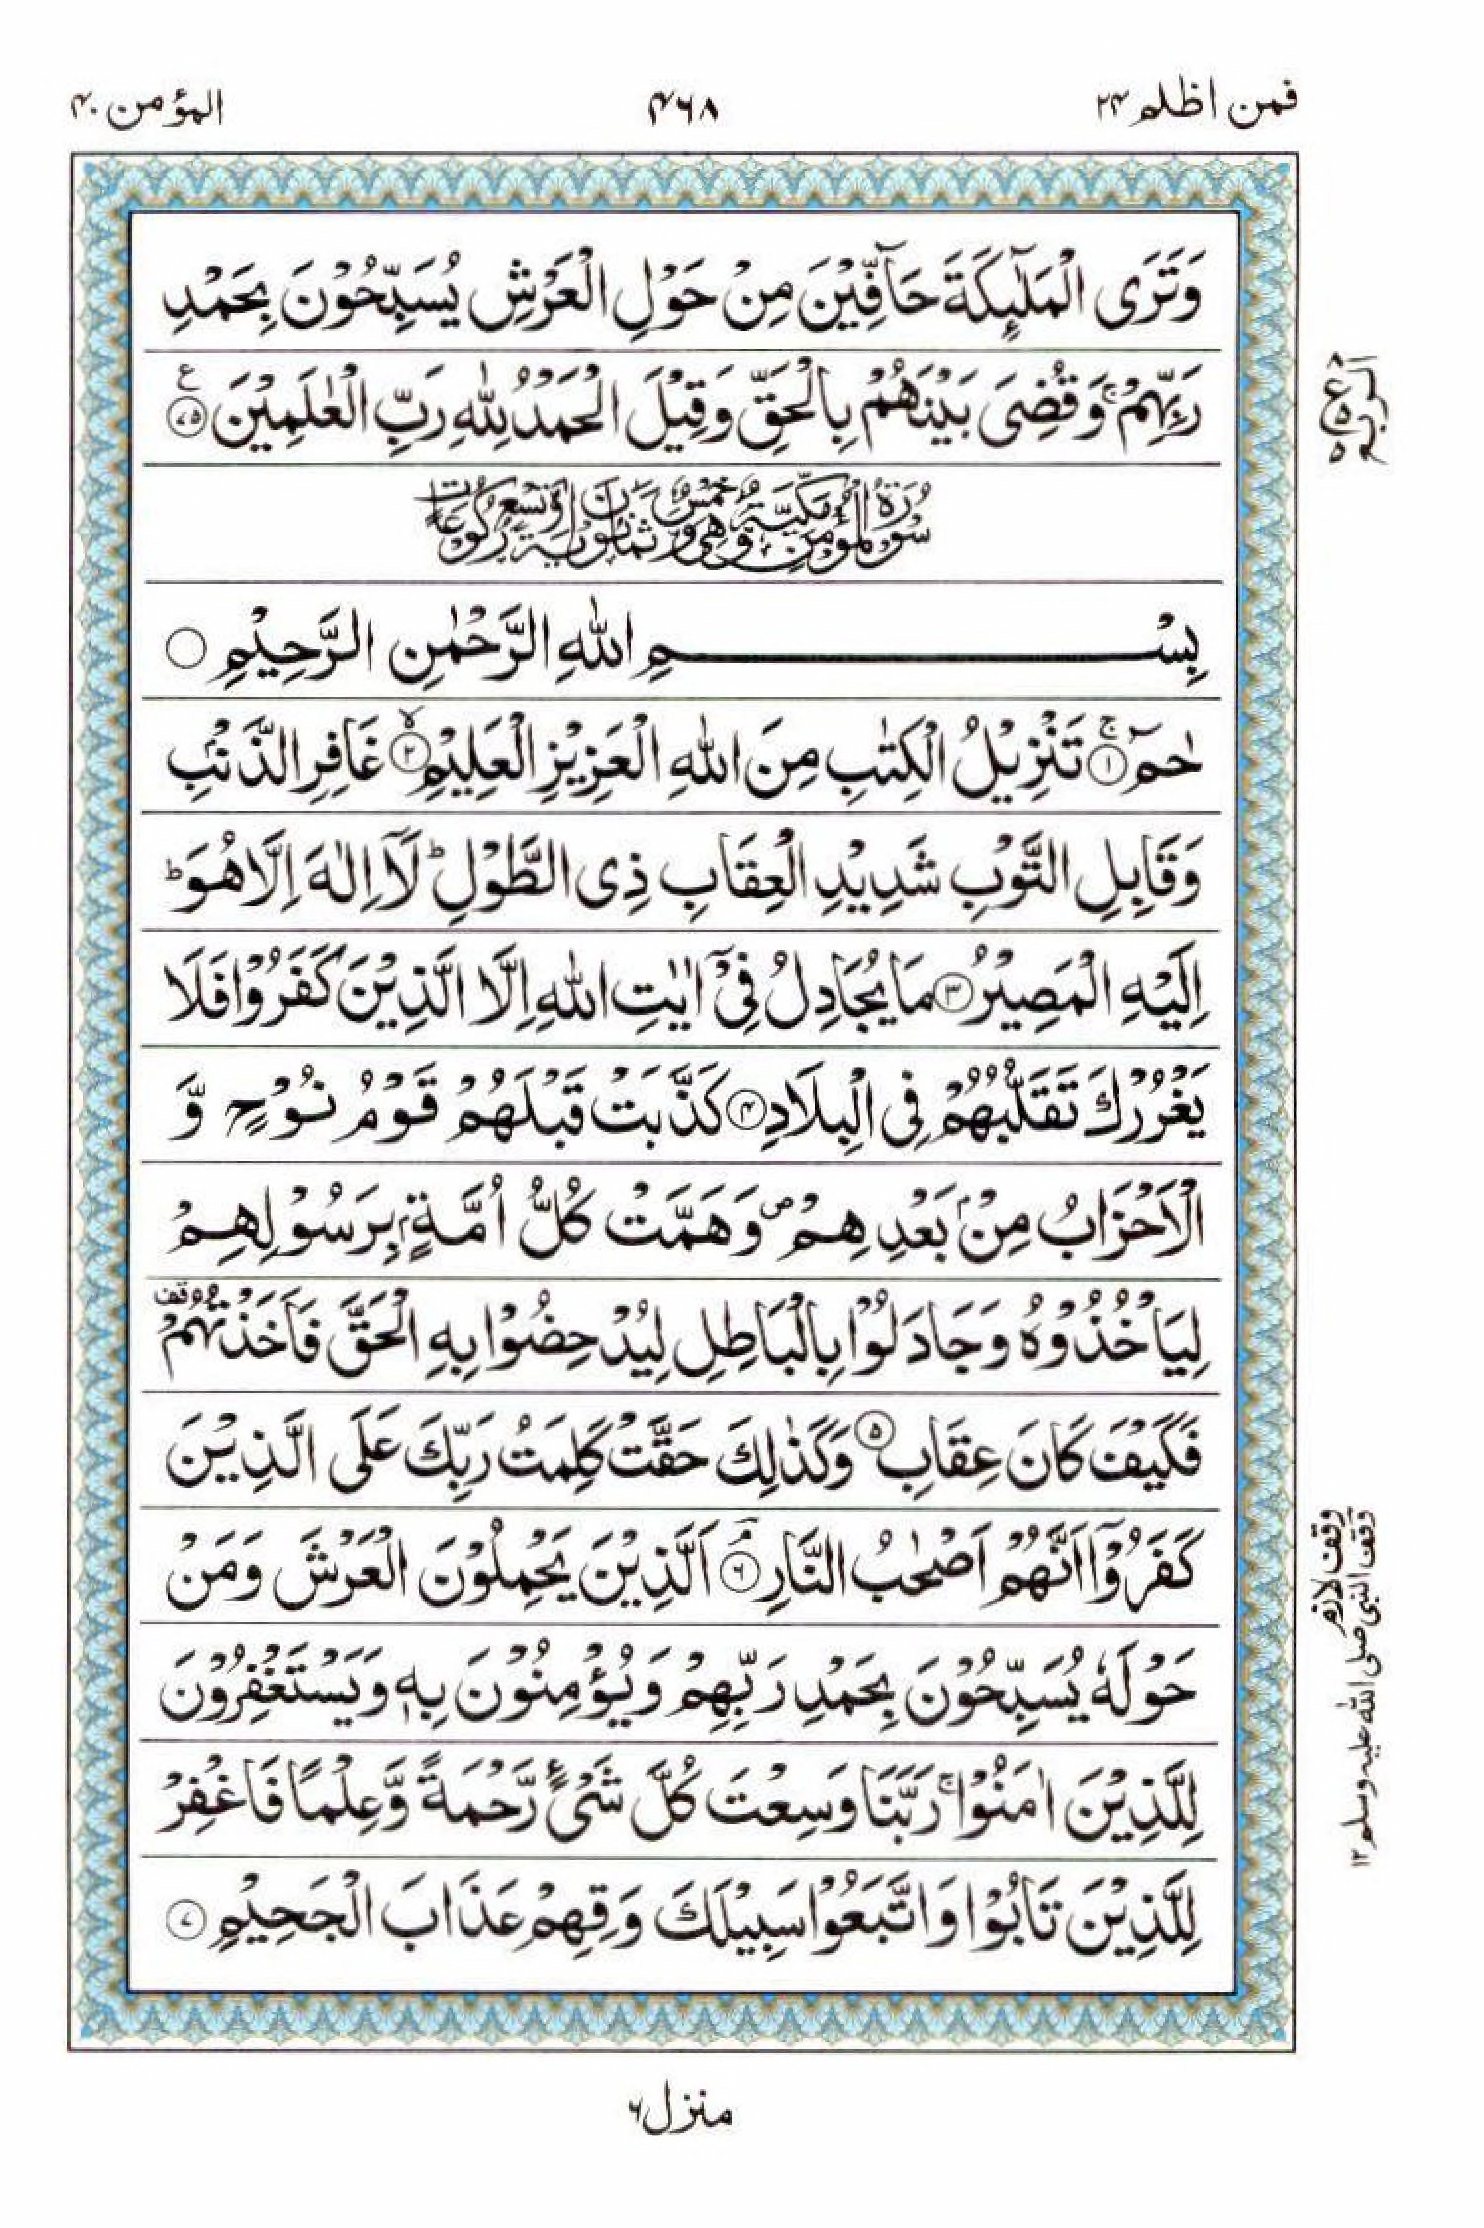 فمن اظلم ۲۴
۴۶۸
المؤمن ۴۰
وَتَرَى الْمَلٰٓئِكَةَ حَآفِّيْنَ مِنْ حَوْلِ الْعَرْشِ يُسَبِّحُوْنَ بِحَمْدِ
رَبِّهِمْ ۚ وَقُضِيَ بَيْنَهُمْ بِالْحَقِّ وَقِيْلَ الْحَمْدُ لِلّٰهِ رَبِّ الْعٰلَمِيْنَ ﴿۷۵﴾ ع
سُوْرَةُ الْمُؤْمِنِ مَكِّيَّةٌ وَّهِيَ خَمْسٌ وَّثَمَانُوْنَ اٰيَةً وَّتِسْعُ رُكُوْعَاتٍ
بِسْمِ اللّٰهِ الرَّحْمٰنِ الرَّحِيْمِ
حٰمٓ ۚ﴿۱﴾ تَنْزِيْلُ الْكِتٰبِ مِنَ اللّٰهِ الْعَزِيْزِ الْعَلِيْمِ ۙ﴿۲﴾ غَافِرِ الذَّنْۢبِ
وَقَابِلِ التَّوْبِ شَدِيْدِ الْعِقَابِ ذِى الطَّوْلِ ؕ لَآ اِلٰهَ اِلَّا هُوَ ؕ
اِلَيْهِ الْمَصِيْرُ ﴿۳﴾ مَا يُجَادِلُ فِيْٓ اٰيٰتِ اللّٰهِ اِلَّا الَّذِيْنَ كَفَرُوْا فَلَا
يَغْرُرْكَ تَقَلُّبُهُمْ فِى الْبِلَادِ ﴿۴﴾ كَذَّبَتْ قَبْلَهُمْ قَوْمُ نُوْحٍ وَّ
الْاَحْزَابُ مِنْۢ بَعْدِهِمْ ۪ وَهَمَّتْ كُلُّ اُمَّةٍۭ بِرَسُوْلِهِمْ
لِيَاْخُذُوْهُ وَجَادَلُوْا بِالْبَاطِلِ لِيُدْحِضُوْا بِهِ الْحَقَّ فَاَخَذْتُهُمْ قف
فَكَيْفَ كَانَ عِقَابِ ﴿۵﴾ وَكَذٰلِكَ حَقَّتْ كَلِمَتُ رَبِّكَ عَلَى الَّذِيْنَ
كَفَرُوْٓا اَنَّهُمْ اَصْحٰبُ النَّارِ ۘ﴿۶﴾ اَلَّذِيْنَ يَحْمِلُوْنَ الْعَرْشَ وَمَنْ
حَوْلَهٗ يُسَبِّحُوْنَ بِحَمْدِ رَبِّهِمْ وَيُؤْمِنُوْنَ بِهٖ وَيَسْتَغْفِرُوْنَ
لِلَّذِيْنَ اٰمَنُوْا ۚ رَبَّنَا وَسِعْتَ كُلَّ شَىْءٍ رَّحْمَةً وَّعِلْمًا فَاغْفِرْ
لِلَّذِيْنَ تَابُوْا وَاتَّبَعُوْا سَبِيْلَكَ وَقِهِمْ عَذَابَ الْجَحِيْمِ ﴿۷﴾
الربع ۸ ع ۵ ۵
وقف لازم
وقف النبي صلى الله عليه وسلم ۱۲
منزل ۶